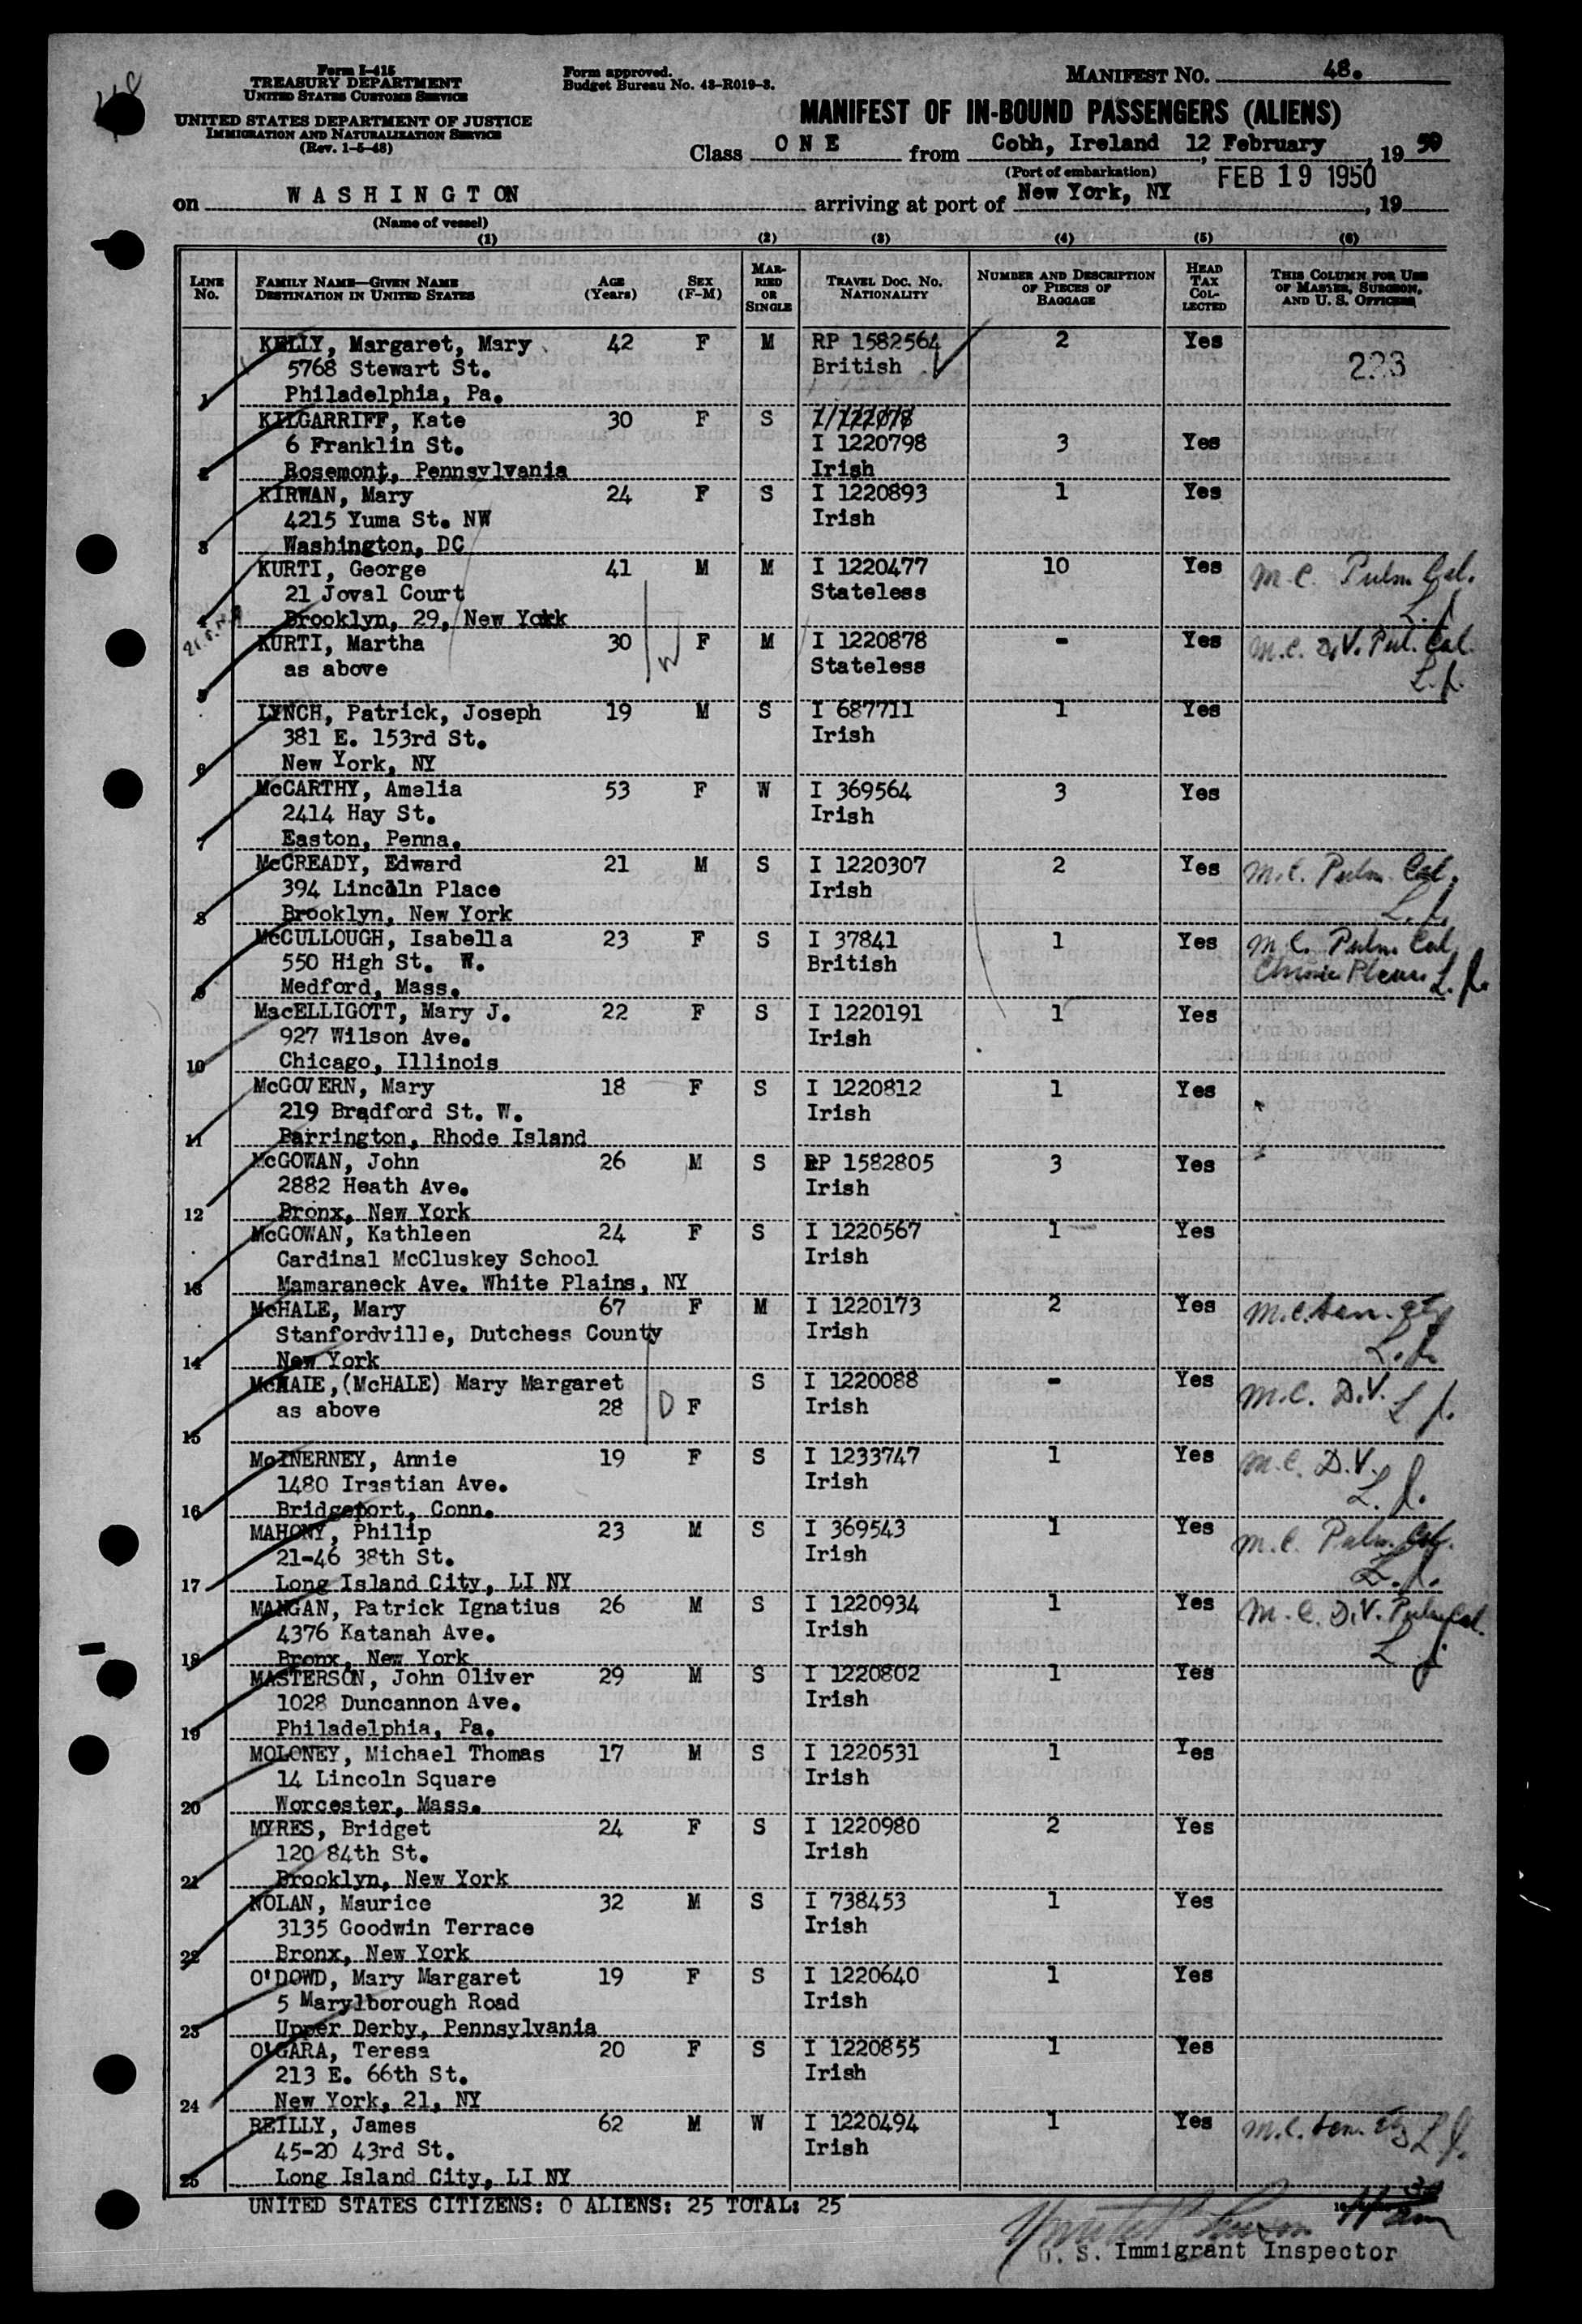 Form I-415
TREASURY DEPARTMENT
UNITED STATES CUSTOMS SERVICE
UNITED STATES DEPARTMENT OF JUSTICE
IMMIGRATION AND NATURALIZATION SERVICE
(Rev. 1-5-48)
Form approved.
Budget Bureau No. 43-R019-3.
MANIFEST NO. 48.
MANIFEST OF IN-BOUND PASSENGERS (ALIENS)
Class O N E from Cobh, Ireland 12 February, 19 50
(Port of embarkation)
FEB 19 1950
on W A S H I N G T ON arriving at port of New York, NY, 19
(Name of vessel)
(1) (2) (3) (4) (5) (6)
LINE No. FAMILY NAME—GIVEN NAME DESTINATION IN UNITED STATES AGE (Years) SEX (F-M) MARRIED OR SINGLE TRAVEL DOC. NO. NATIONALITY NUMBER AND DESCRIPTION OF PIECES OF BAGGAGE HEAD TAX COLLECTED THIS COLUMN FOR USE OF MASTER, SURGEON, AND U. S. OFFICERS
KELLY, Margaret, Mary 42 F M RP 1582564 2 Yes
5768 Stewart St. British 223
1 Philadelphia, Pa.
KILGARRIFF, Kate 30 F S
6 Franklin St. I 1220798 3 Yes
2 Rosemont, Pennsylvania Irish
KIRWAN, Mary 24 F S I 1220893 1 Yes
4215 Yuma St. NW Irish
3 Washington, DC
KURTI, George 41 M M I 1220477 10 Yes M.C. Pulm. Cal.
21 Joval Court Stateless
4 Brooklyn, 29, New York L.J.
KURTI, Martha 30 F M I 1220878 - Yes M.C. D.V. Pul. Cal.
as above Stateless L.J.
5
LYNCH, Patrick, Joseph 19 M S I 687711 1 Yes
381 E. 153rd St. Irish
6 New York, NY
McCARTHY, Amelia 53 F W I 369564 3 Yes
2414 Hay St. Irish
7 Easton, Penna.
McCREADY, Edward 21 M S I 1220307 2 Yes M.C. Pulm. Cal.
394 Lincoln Place Irish
8 Brooklyn, New York L.J.
McCULLOUGH, Isabella 23 F S I 37841 1 Yes M.C. Pulm. Cal
550 High St. W. British L.J.
9 Medford, Mass.
MacELLIGOTT, Mary J. 22 F S I 1220191 1 Yes
927 Wilson Ave. Irish
10 Chicago, Illinois
McGOVERN, Mary 18 F S I 1220812 1 Yes
219 Bradford St. W. Irish
11 Barrington, Rhode Island
McGOWAN, John 26 M S RP 1582805 3 Yes
2882 Heath Ave. Irish
12 Bronx, New York
McGOWAN, Kathleen 24 F S I 1220567 1 Yes
Cardinal McCluskey School Irish
13 Mamaraneck Ave. White Plains, NY
McHALE, Mary 67 F M I 1220173 2 Yes M.C. Sen.
Stanfordville, Dutchess County Irish
14 New York L.J.
McHAIE,(McHALE) Mary Margaret S I 1220088 - Yes M.C. D.V.
as above 28 D F Irish L.J.
15
McINERNEY, Annie 19 F S I 1233747 1 Yes M.C. D.V.
1480 Irastian Ave. Irish L.J.
16 Bridgeport, Conn.
MAHONY, Philip 23 M S I 369543 1 Yes M.C. Pulm. Cal.
21-46 38th St. Irish L.J.
17 Long Island City, LI NY
MANGAN, Patrick Ignatius 26 M S I 1220934 1 Yes M.C. D.V. Pulm. Cal.
4376 Katanah Ave. Irish L.J.
18 Bronx, New York
MASTERSON, John Oliver 29 M S I 1220802 1 Yes
1028 Duncannon Ave. Irish
19 Philadelphia, Pa.
MOLONEY, Michael Thomas 17 M S I 1220531 1 Yes
14 Lincoln Square Irish
20 Worcester, Mass.
MYRES, Bridget 24 F S I 1220980 2 Yes
120 84th St. Irish
21 Brooklyn, New York
NOLAN, Maurice 32 M S I 738453 1 Yes
3135 Goodwin Terrace Irish
22 Bronx, New York
O'DOWD, Mary Margaret 19 F S I 1220640 1 Yes
5 Marylborough Road Irish
23 Upper Derby, Pennsylvania
O'GARA, Teresa 20 F S I 1220855 1 Yes
213 E. 66th St. Irish
24 New York, 21, NY
REILLY, James 62 M W I 1220494 1 Yes M.C. Sen.
45-20 43rd St. Irish L.J.
25 Long Island City, LI NY
UNITED STATES CITIZENS: 0 ALIENS: 25 TOTAL: 25
U. S. Immigrant Inspector